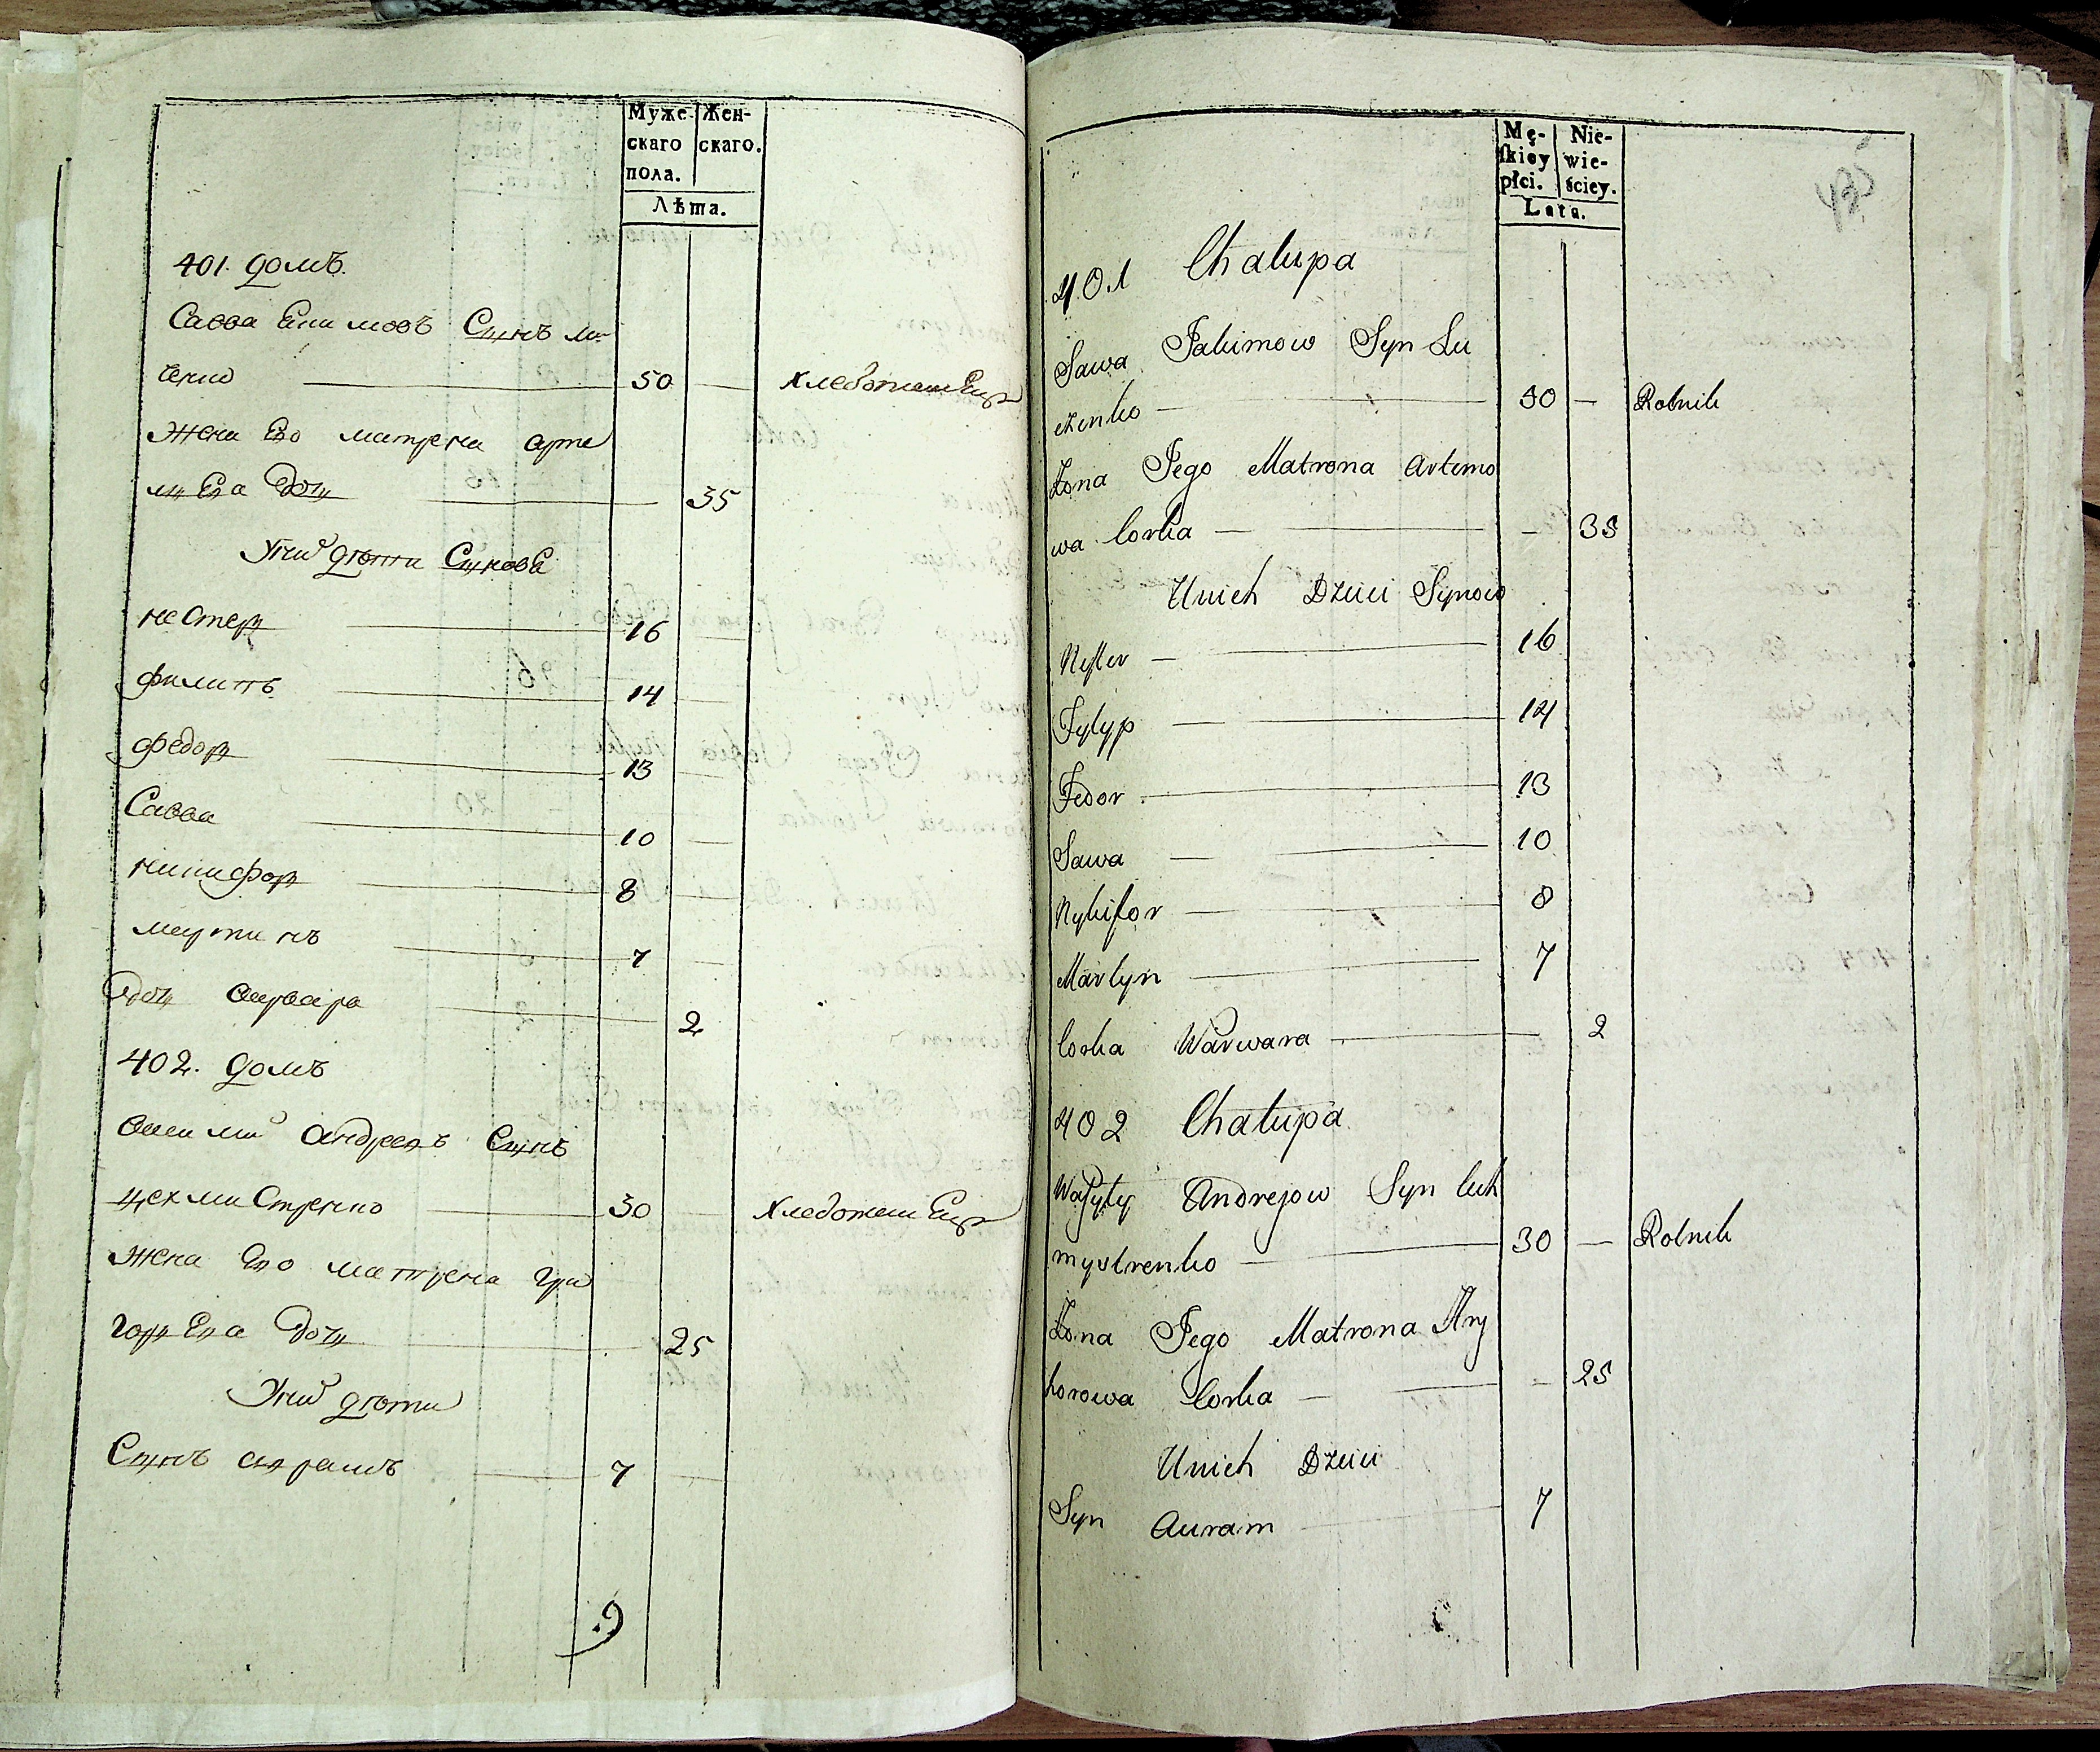 Муже- Жен-
скаго скаго.
пола.
Лѣта.
401. домъ.
Савва Екимовъ Сынъ лу-
ченко 50 — хлебопашецъ
жена Его матрена арте
мьева дочь 35
У них дѣти Сынове
нестеръ 16 —
филипъ 14 —
федоръ 13 —
Савва 10 —
никифоръ 8 —
мартинъ 7 —
дочь варвара 2
402. домъ
василий андреевъ Сынъ
цехмистренко 30 — хлебопашецъ
жена Его матрена гри
горьева дочь 25
У них дѣти
Сынъ аврамъ 7 —
9
Mę- Nie-
skiey wie-
płci. ściey.
Lata.
401 Chalupa
Sawa Jakimow Syn Lu
czenko — 50 — Rolnik
Żona Jego Matrona Artemo
wa Corka — — 35
Unich Dzieci Synow
Nester — 16
Fylyp — 14
Fedor — 13
Sawa — 10
Nykifor — 8
Martyn — 7
Corka Warwara — 2
402 Chalupa
Wasyly Andrejow Syn Cech
mystrenko — 30 — Rolnik
Żona Jego Matrona Hry
horowa Corka — — 25
Unich Dzieci
Syn Auram 7